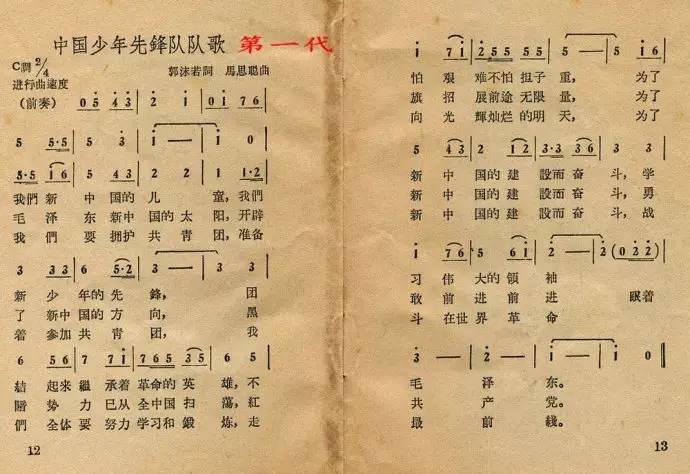 中国少年先鋒队队歌 第一代
C調 2/4
进行曲速度
郭沫若詞 馬思聪曲
(前奏) 0 5 4 3 | 2 1 | 0 1 7 6 |
5 5·5 | 5 5 | 1 — | 1 0 |
5·5 1 6 | 5 3 | 2 1 | 2 1·2 |
我們 新 中国的 儿 童,我們
毛 泽 东 新中国的太 阳,开辟
我 們 要 拥护 共 青 团,准备
3 3 3 | 6 5·2 | 3 — | 3 3 |
新 少 年的先 鋒, 团
了 新中国的方 向, 黑
着 参加共 青 团, 我
6 5 6 | 7 7 1 | 7 6 3 5 | 5 5 |
結 起來 繼 承着革命的英 雄,不
暗 势 力 已从全中国扫 蕩,紅
們 全体要 努力学习和鍛 炼,走
12
1 7 1 | 2 5 5 5 | 5 5 | 5 1 6 |
怕 艰 难不怕 担子 重, 为了
旗 招 展前途无限 量, 为了
向 光 輝灿烂的明 天, 为了
5 4 3 | 2 1 2 | 3·3 3 6 | 3 3 |
新 中 国的 建 設而奋 斗,学
新 中 国的 建 設而奋 斗,勇
新 中 国的 建 設而奋 斗,战
1 7 6 | 5 5 1 | 2 — | 2 (0 2 2) |
习 伟 大的 領 袖
敢 前 进前 进 跟着
斗 在世 界 革 命
3 — | 2 — | 1 — | 1 0 ‖
毛 泽 东。
共 产 党。
最 前 綫。
13